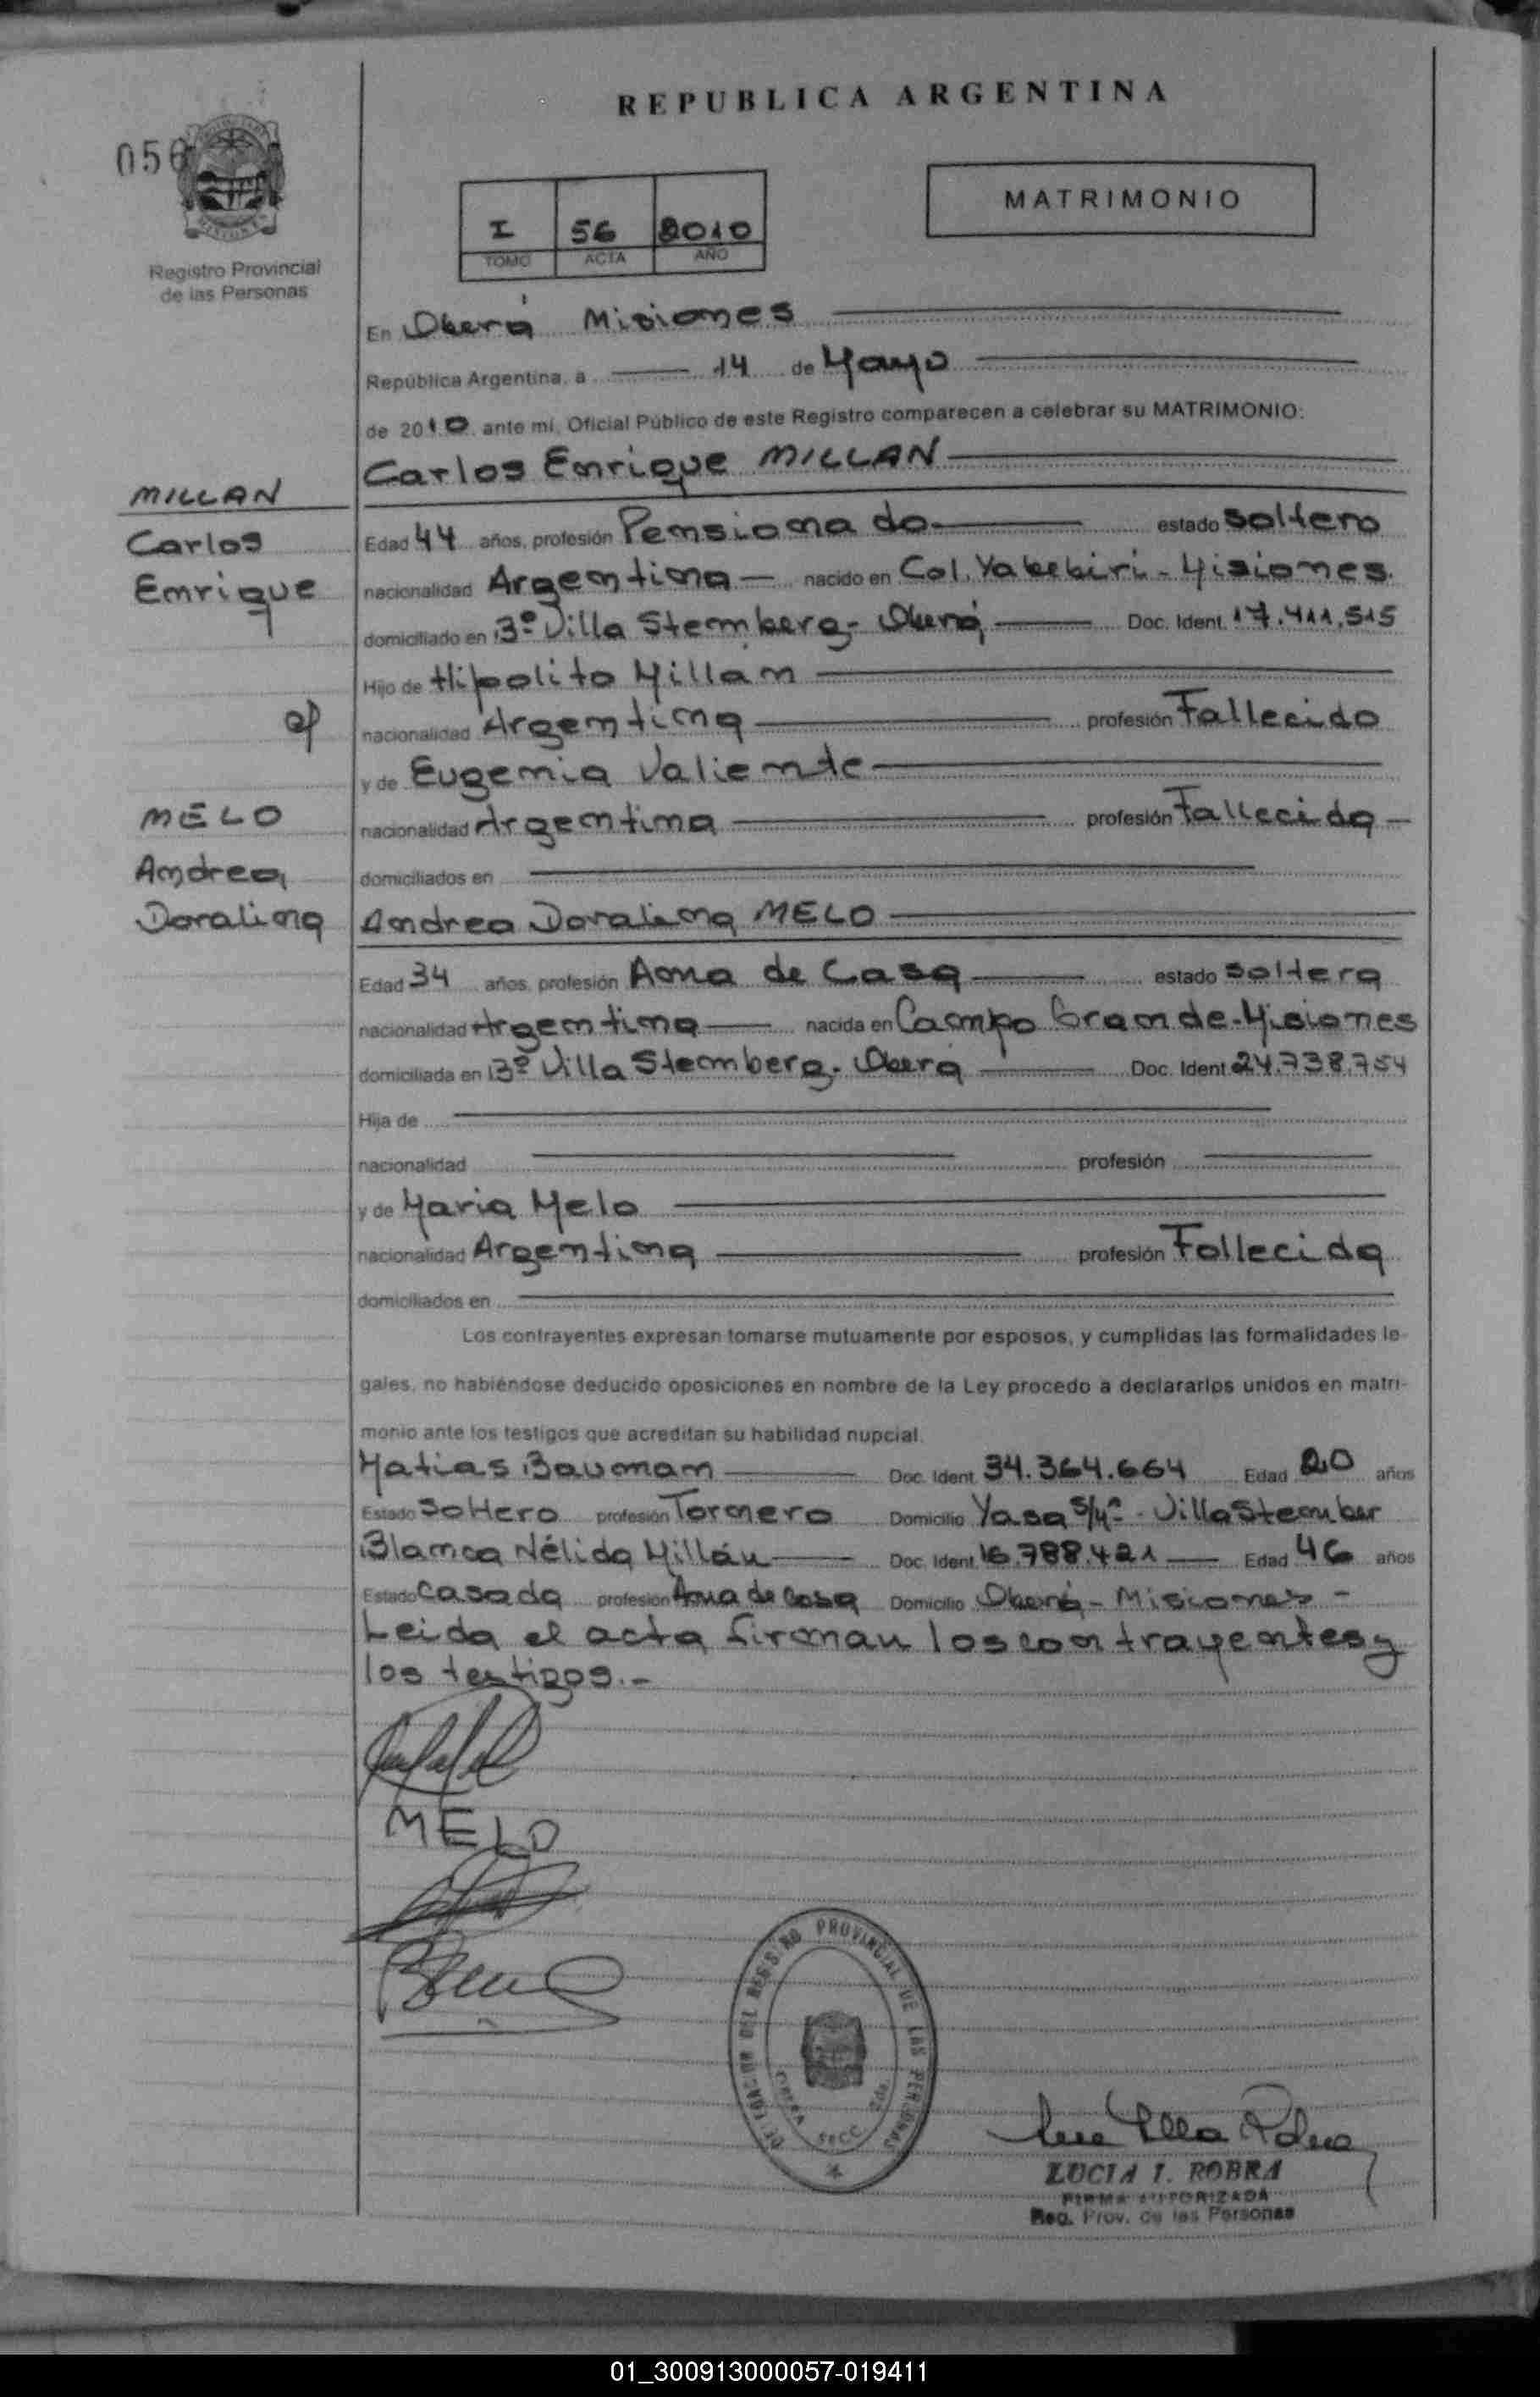 REPUBLICA ARGENTINA
056
MATRIMONIO
I 56 2010
TOMO ACTA AÑO
Registro Provincial
de las Personas
En Oberá Misiones
República Argentina, a 14 de Mayo
de 2010 ante mí, Oficial Público de este Registro comparecen a celebrar su MATRIMONIO:
Carlos Enrique MILLAN
MILLAN
Carlos
Enrique
Edad 44 años, profesión Pensionado estado soltero
nacionalidad Argentina nacido en Col. Yabebiri - Misiones
domiciliado en Bº Villa Stemberg - Oberá Doc. Ident. 17.411.515
Hijo de Hipolito Millan
nacionalidad Argentina profesión Fallecido
y de Eugenia Valiente
nacionalidad Argentina profesión Fallecida
domiciliados en
c/
MELO
Andrea
Doralina
Andrea Doralina MELO
Edad 34 años, profesión Ama de Casa estado soltera
nacionalidad Argentina nacida en Campo Grande - Misiones
domiciliada en Bº Villa Stemberg - Obera Doc. Ident 24.738.754
Hija de
nacionalidad profesión
y de Maria Melo
nacionalidad Argentina profesión Fallecida
domiciliados en
Los contrayentes expresan tomarse mutuamente por esposos, y cumplidas las formalidades le-
gales, no habiéndose deducido oposiciones en nombre de la Ley procedo a declararlos unidos en matri-
monio ante los testigos que acreditan su habilidad nupcial.
Matias Bauman Doc. Ident. 34.364.664 Edad 20 años
Estado Soltero profesión Tornero Domicilio Yasa s/nº - Villa Stember
Blanca Nélida Millán Doc. Ident. 16.788.421 Edad 46 años
Estado Casada profesión Ama de Casa Domicilio Oberá - Misiones -
Leida el acta firman los contrayentes y
los testigos.-
MELO
DELEGACION DEL REGISTRO PROVINCIAL DE LAS PERSONAS
OBERA SECC. 2da.
LUCIA I. ROBRA
FIRMA AUTORIZADA
Reg. Prov. de las Personas
01_300913000057-019411